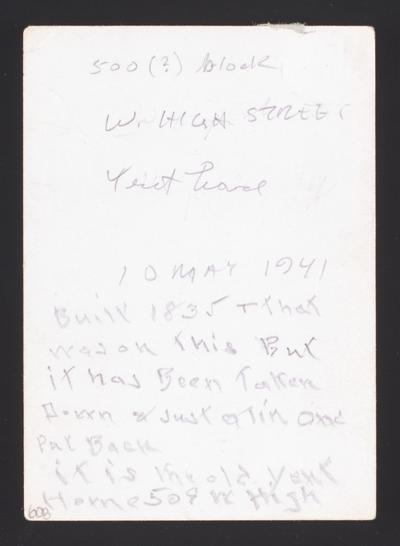 500 (?) block
W. HIGH STREET
10 MAY 1941
Built 1835 + that
was on this But
it has Been Taken
Down & Just a Tin one
Put Back
it is the old Yeut
Home 509 W High
608